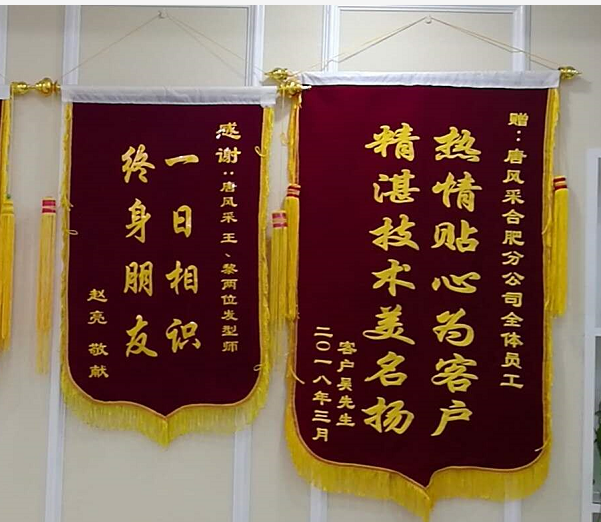 感谢：唐风采 王、黎两位发型师
一日相识
终身朋友
赵亮 敬献
赠：唐风采合肥分公司全体员工
热情贴心为客户
精湛技术美名扬
客户吴先生
二〇一八年三月